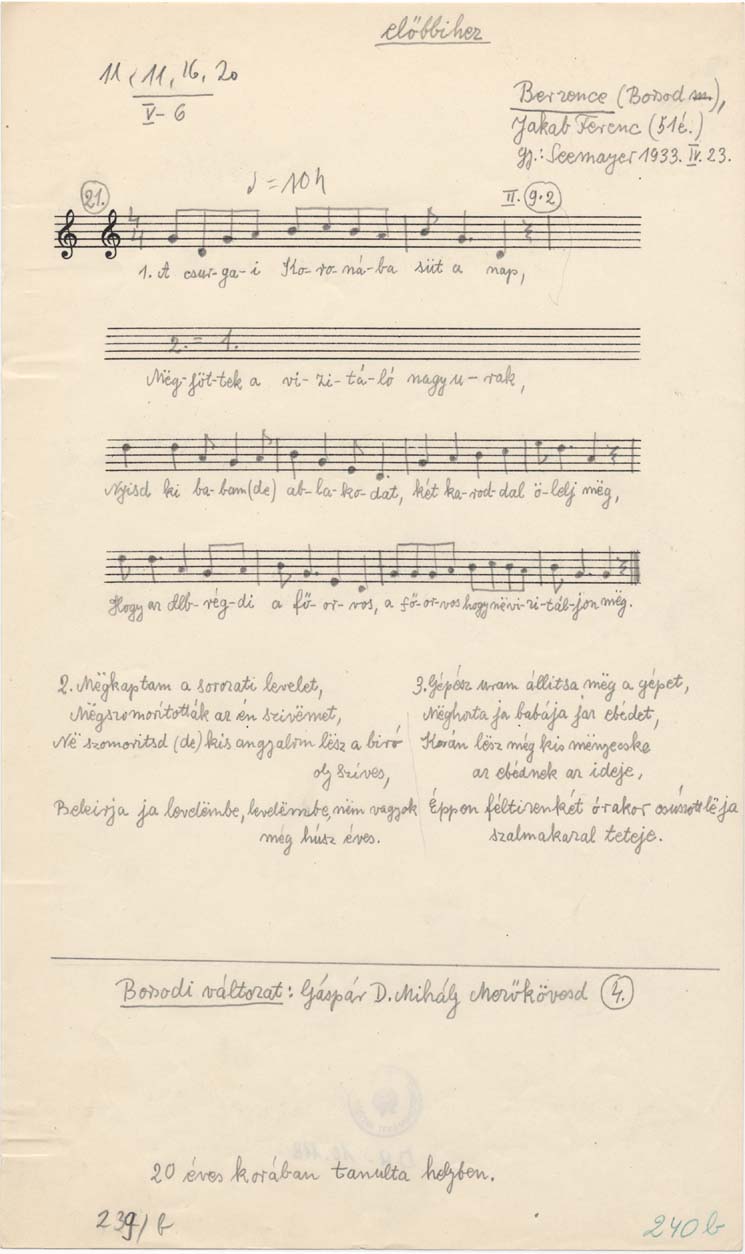 előbbihez
11, 11, 16, 20
V-6
Berzence (Borsod m.),
Jakab Ferenc (51é.)
gy.: Seemayer 1933. IV. 23.
♩ = 104
21.
II. 9.2
4/4
1. A csur-ga-i Ko-ro-ná-ba süt a nap,
2. = 1.
Még-jöt-tek a vi-zi-tá-ló nagy u-rak,
Nyisd ki ba-bam (de) ab-la-ko-dat, két ka-rod-dal ö-lelj mëg,
Hogy az Alb-rég-di a fő-or-vos, a fő-or-vos hogy në vi-zi-tál-jon mëg.
2. Mëgkaptam a sorozati levelet,
Mëgszomorították az én szivëmet,
Në szomoritsd (de) kis angyalom lësz a biró
oly szives,
Beleirja ja levelëmbe, levelëmbe, nëm vagyok
még húsz éves.
3. Gépész uram állitsa mëg a gépet,
Mëghozta ja babája jaz ebédet,
Korán lësz még kis mënyecske
az ebédnek az ideje,
Éppen féltizenkét órakor csúszott lë ja
szalmakazal teteje.
Borsodi változat: Gáspár D. Mihály Mezőkövesd 4.
20 éves korában tanulta helyben.
239/b
240 b